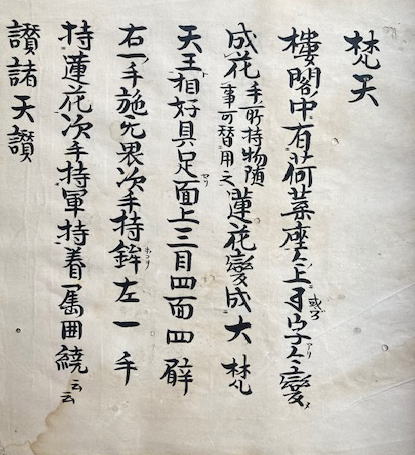 梵天
樓閣中有荷葉座々上字々變
成花手所持物随事可替用之蓮花變成大梵
天王相好具足面上三目四面四臂
右一手施无畏次手持鉾左一手
持蓮花次手持軍持眷属囲繞云云
讃諸天讃